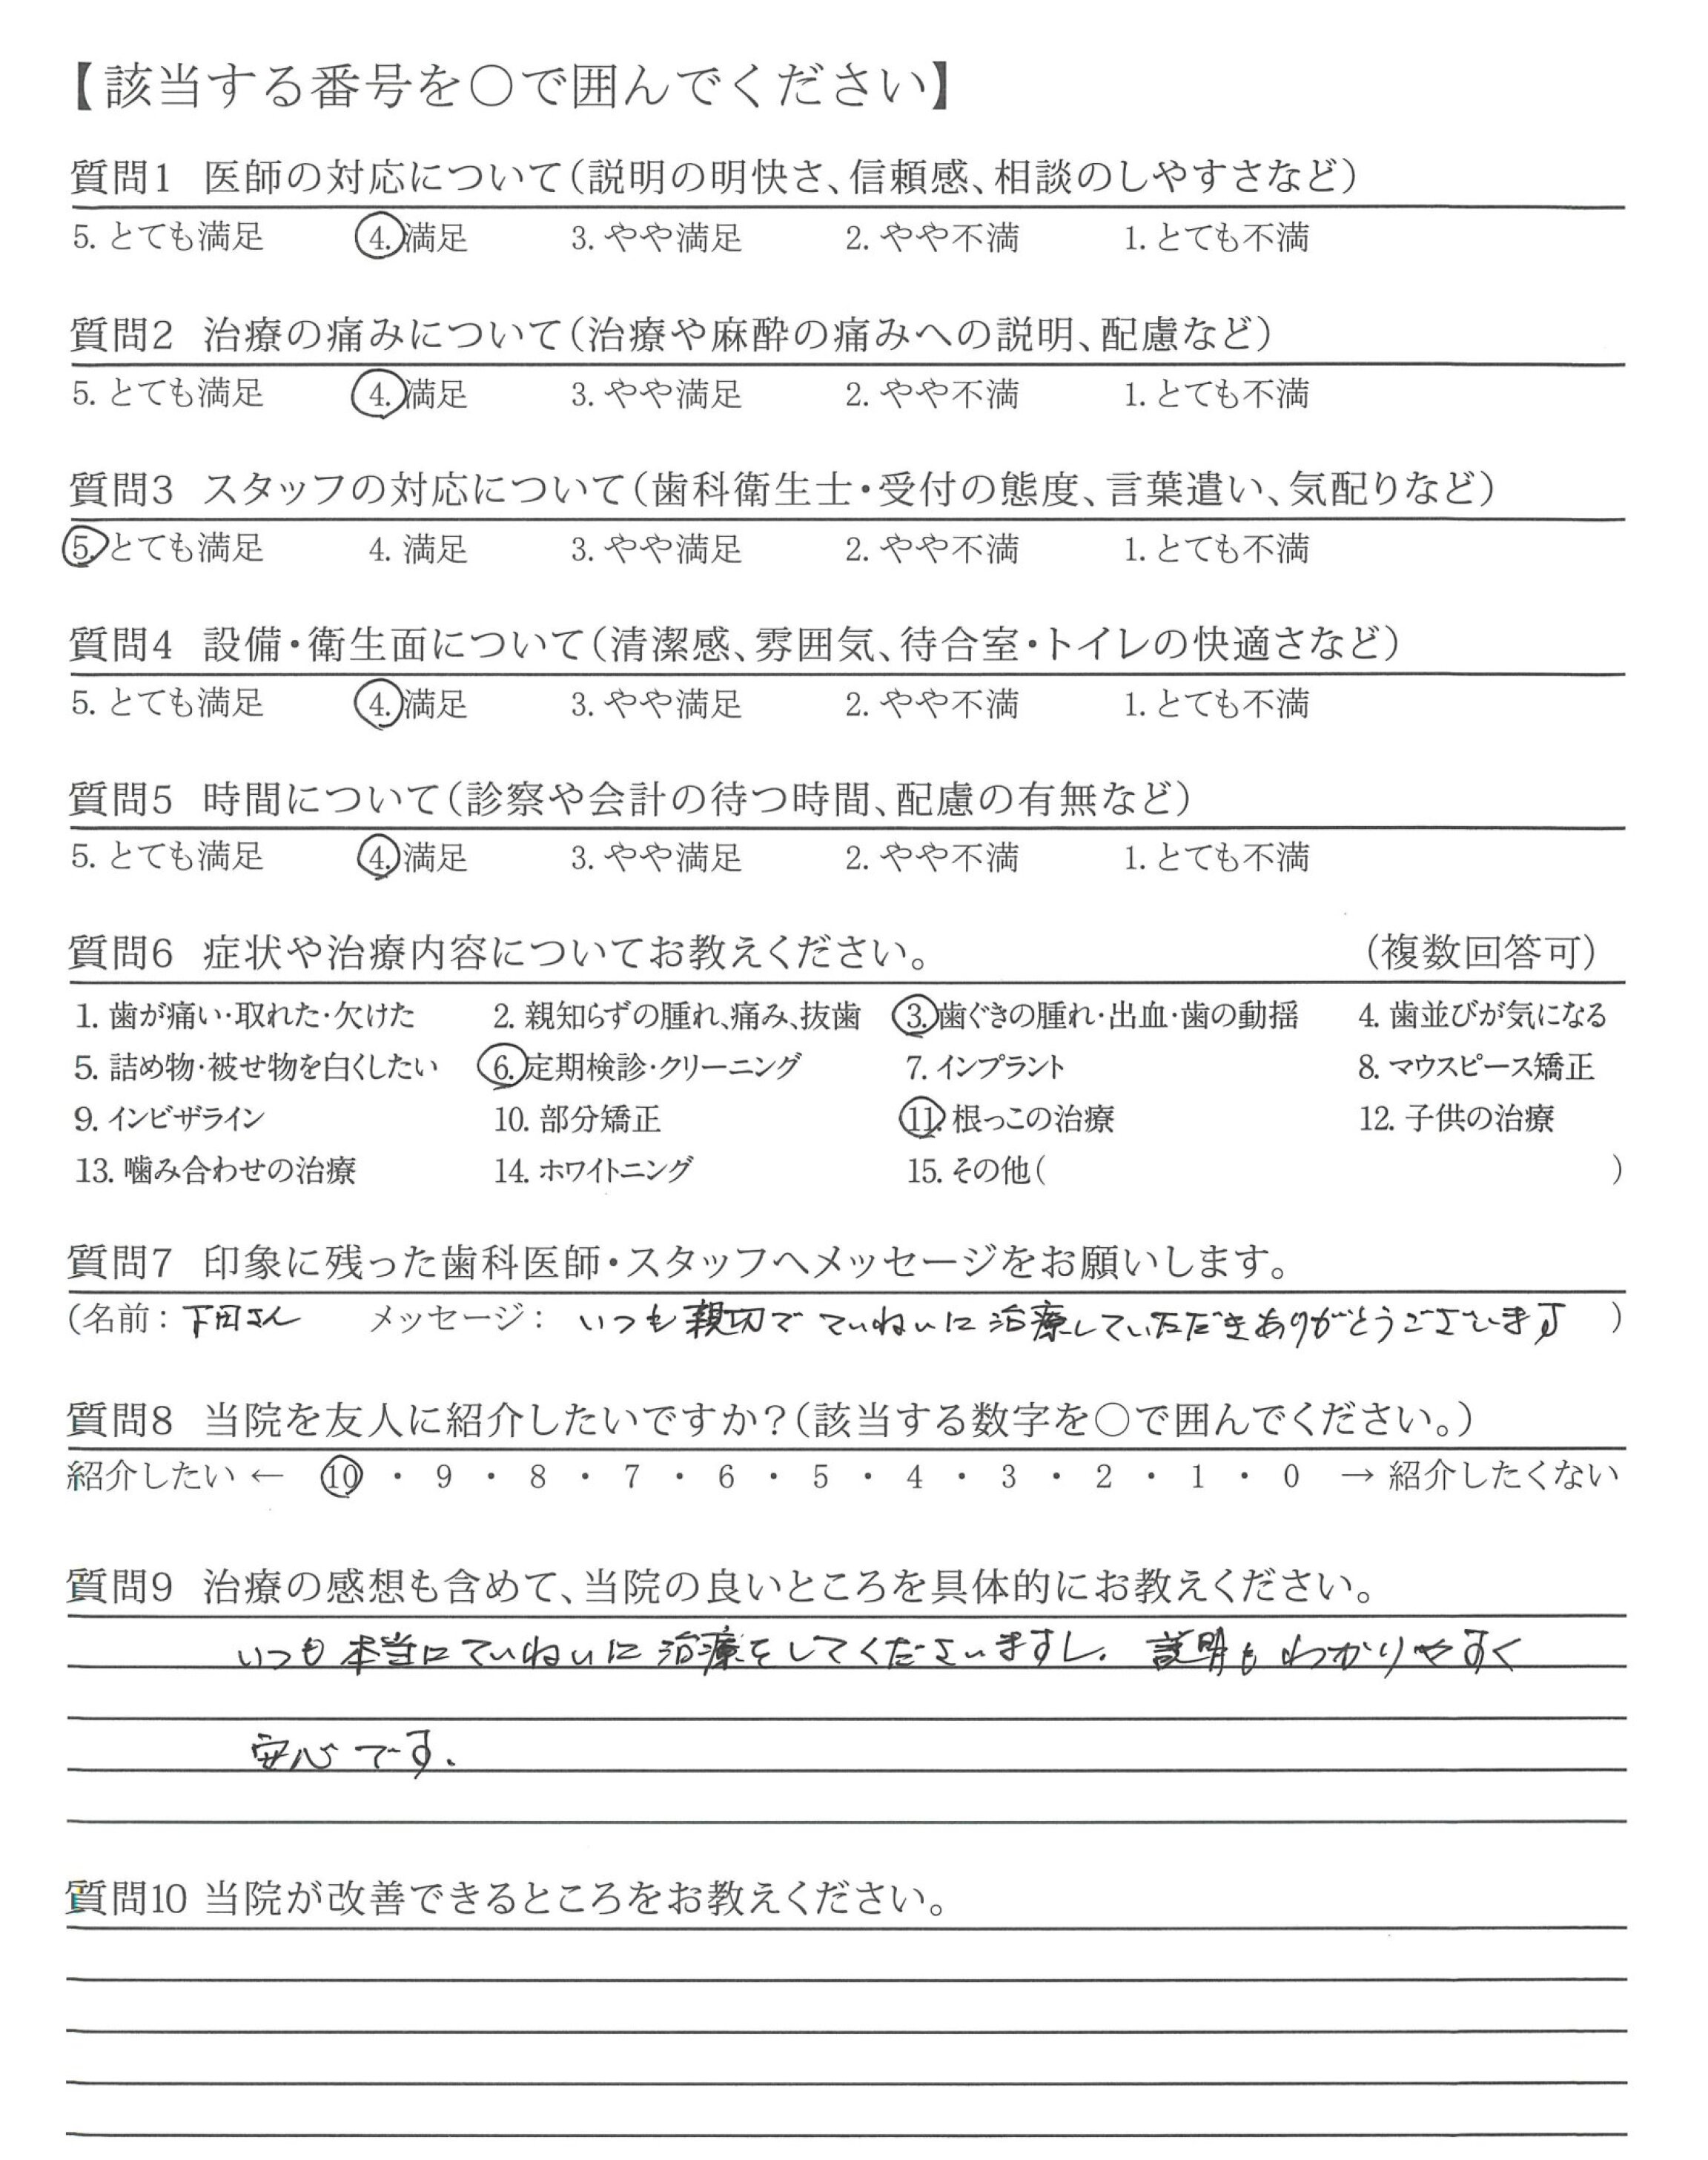 【該当する番号を○で囲んでください】
質問1 医師の対応について（説明の明快さ、信頼感、相談のしやすさなど）
5. とても満足 4. 満足 3. やや満足 2. やや不満 1. とても不満
質問2 治療の痛みについて（治療や麻酔の痛みへの説明、配慮など）
5. とても満足 4. 満足 3. やや満足 2. やや不満 1. とても不満
質問3 スタッフの対応について（歯科衛生士・受付の態度、言葉遣い、気配りなど）
5. とても満足 4. 満足 3. やや満足 2. やや不満 1. とても不満
質問4 設備・衛生面について（清潔感、雰囲気、待合室・トイレの快適さなど）
5. とても満足 4. 満足 3. やや満足 2. やや不満 1. とても不満
質問5 時間について（診察や会計の待つ時間、配慮の有無など）
5. とても満足 4. 満足 3. やや満足 2. やや不満 1. とても不満
質問6 症状や治療内容についてお教えください。 （複数回答可）
1. 歯が痛い・取れた・欠けた 2. 親知らずの腫れ、痛み、抜歯 3. 歯ぐきの腫れ・出血・歯の動揺 4. 歯並びが気になる
5. 詰め物・被せ物を白くしたい 6. 定期検診・クリーニング 7. インプラント 8. マウスピース矯正
9. インビザライン 10. 部分矯正 11. 根っこの治療 12. 子供の治療
13. 噛み合わせの治療 14. ホワイトニング 15. その他（ ）
質問7 印象に残った歯科医師・スタッフへメッセージをお願いします。
（名前：下田さん メッセージ： いつも親切で ていねいに治療していただきありがとうございます ）
質問8 当院を友人に紹介したいですか？（該当する数字を○で囲んでください。）
紹介したい ← 10 ・ 9 ・ 8 ・ 7 ・ 6 ・ 5 ・ 4 ・ 3 ・ 2 ・ 1 ・ 0 → 紹介したくない
質問9 治療の感想も含めて、当院の良いところを具体的にお教えください。
いつも本当にていねいに治療をしてくださいますし、説明もわかりやすく
安心です。
質問10 当院が改善できるところをお教えください。